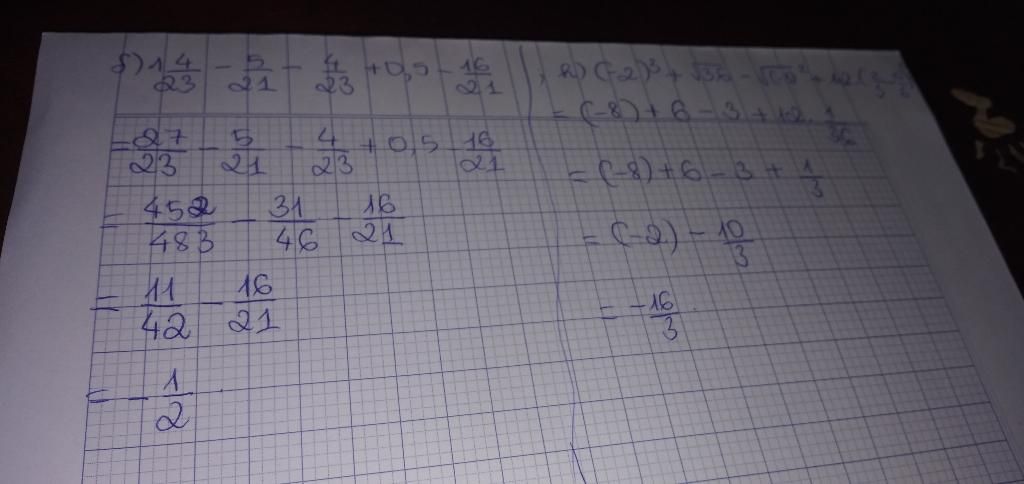 б) 1 4/23 - 5/21 - 4/23 + 0,5 - 16/21
= 27/23 - 5/21 - 4/23 + 0,5 - 16/21
= 452/483 - 31/46 - 16/21
= 11/42 - 16/21
= - 1/2
(-2)³ + √36 -
= (-8) + 6 - 3 + 12 . 1/36
= (-8) + 6 - 3 + 1/3
= (-2) - 10/3
= -16/3